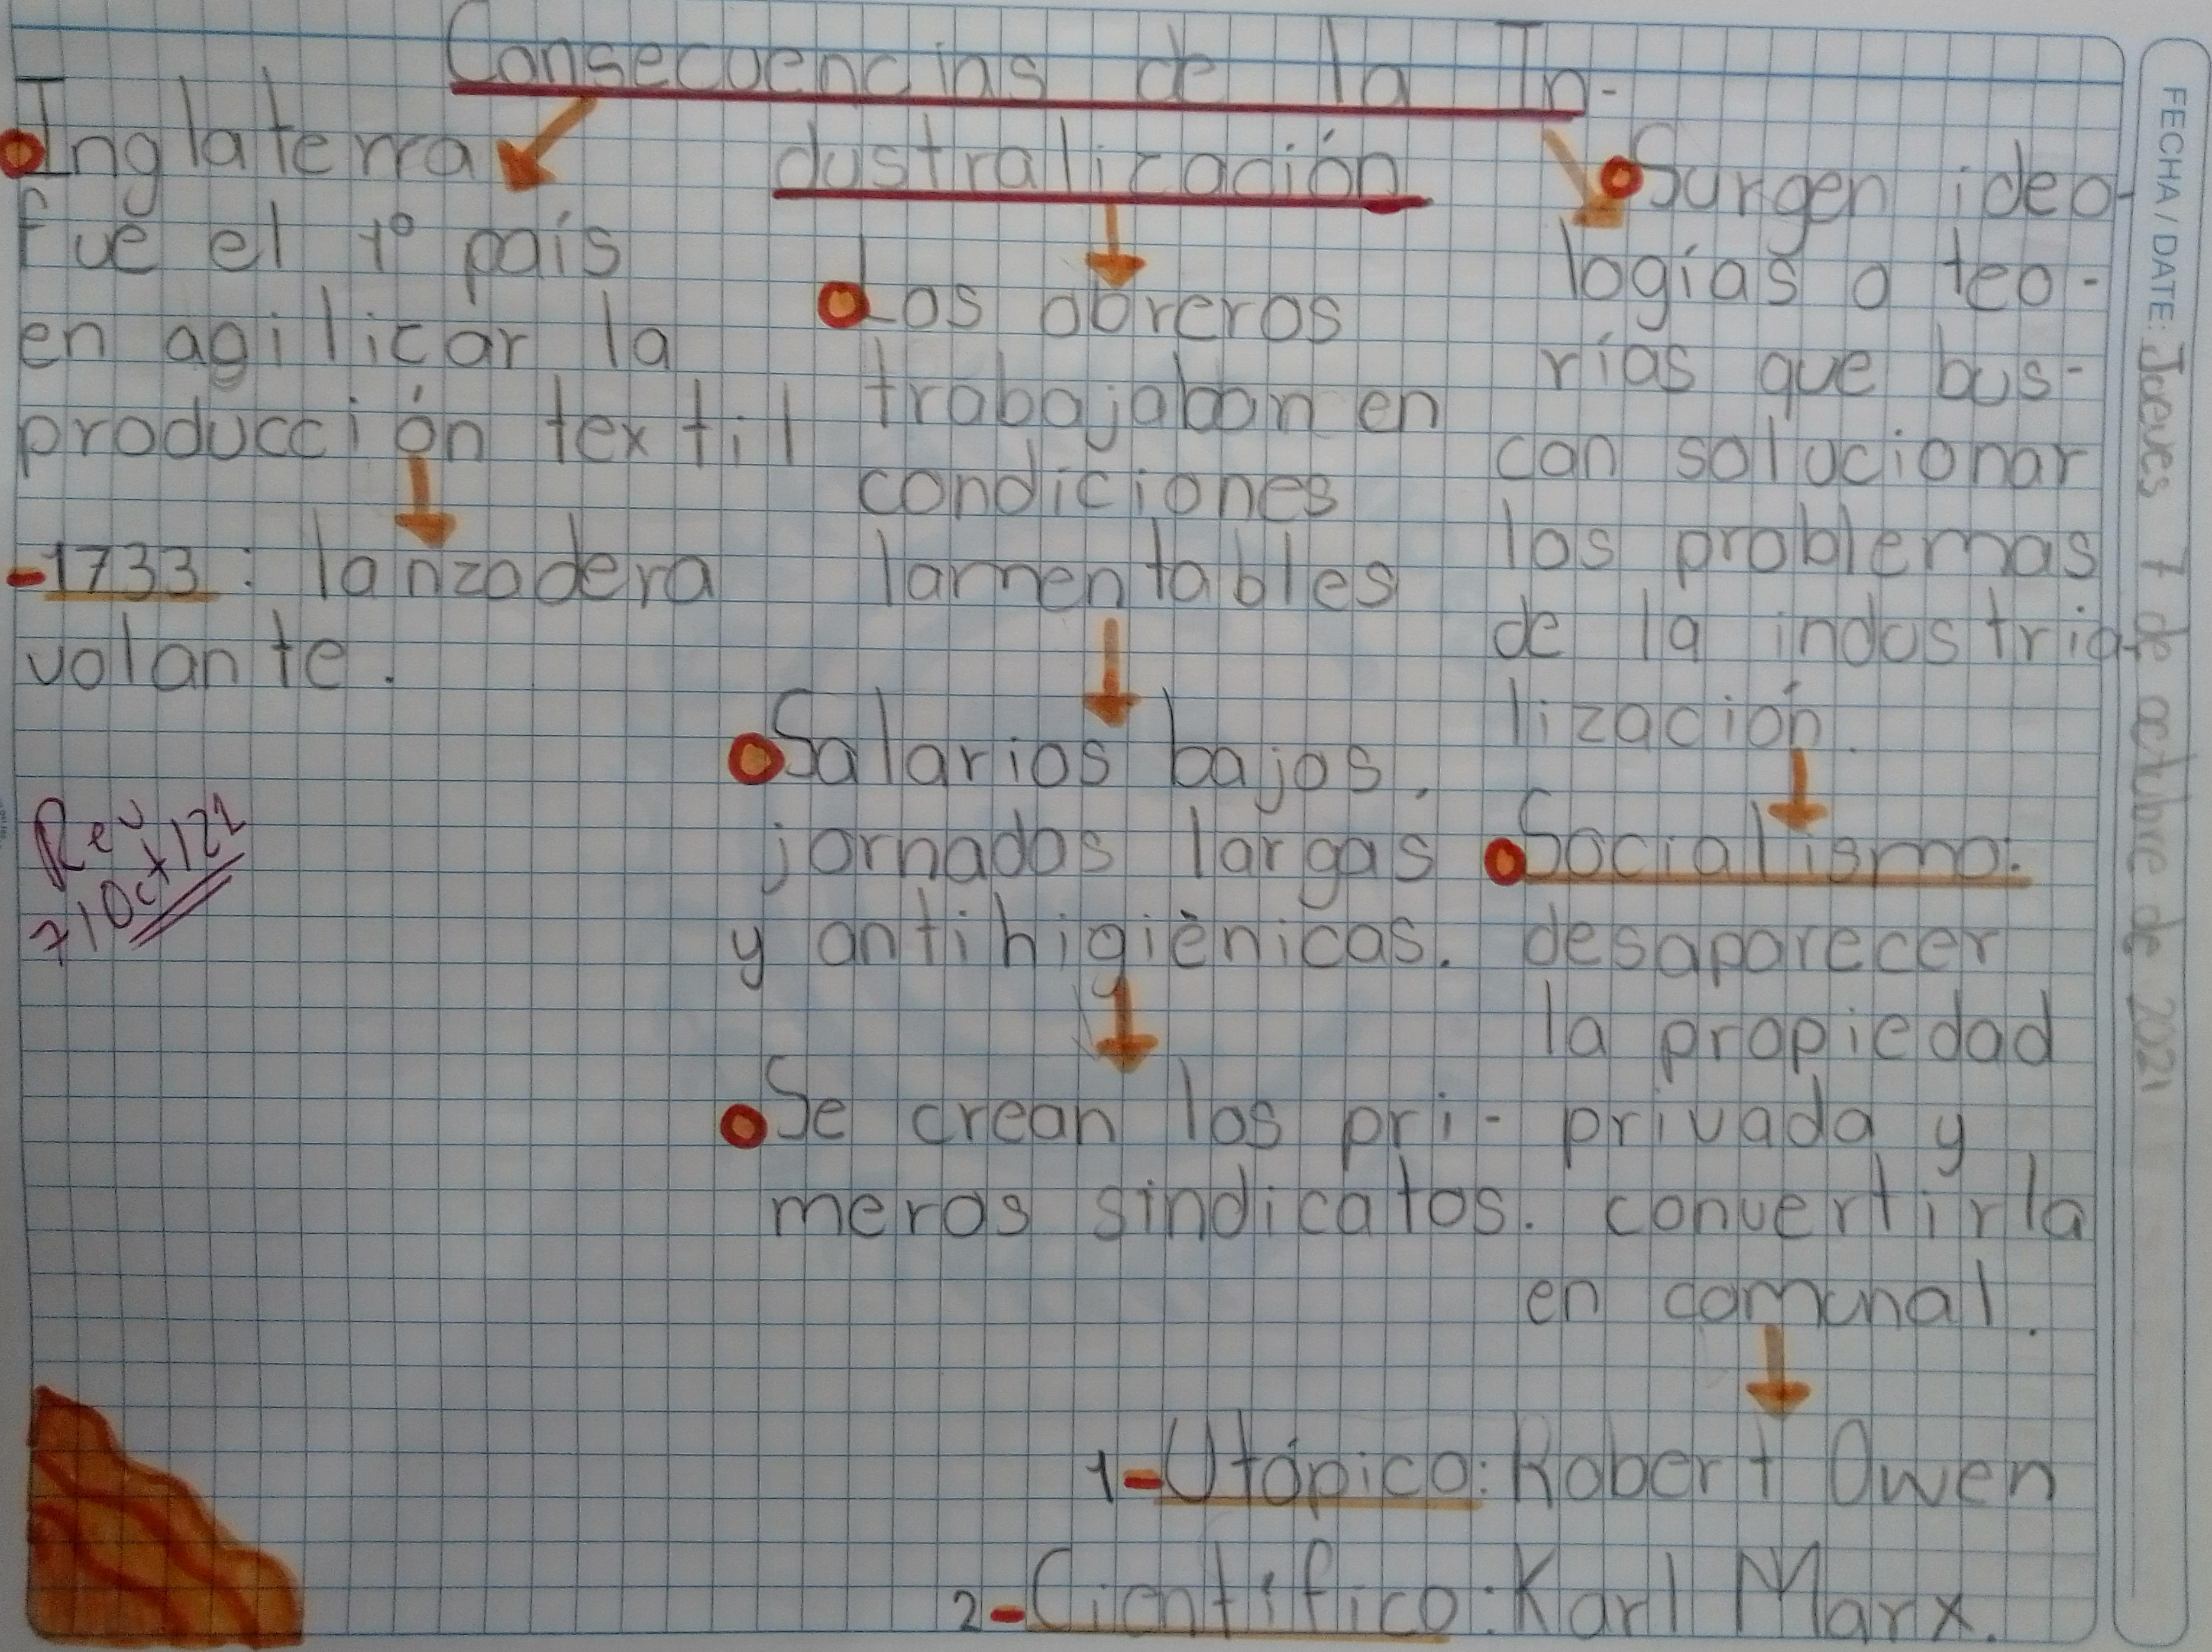 Consecuencias de la In-
dustralización
Inglaterra
fue el 1º país
en agilizar la
producción textil
-1733: lanzadera
volante.
Rev
7/Oct/22
Los obreros
trabajaban en
condiciones
lamentables
Salarios bajos,
jornadas largas
y antihigiènicas.
Se crean los pri-
meros sindicatos.
Surgen ideo-
logías o teo-
rías que bus-
can solucionar
los problemas
de la industria-
lización.
Socialismo:
desaparecer
la propiedad
privada y
convertirla
en comunal.
1-Utópico: Robert Owen
2-Científico: Karl Marx.
FECHA/DATE: Jueves 7 de octubre de 2021